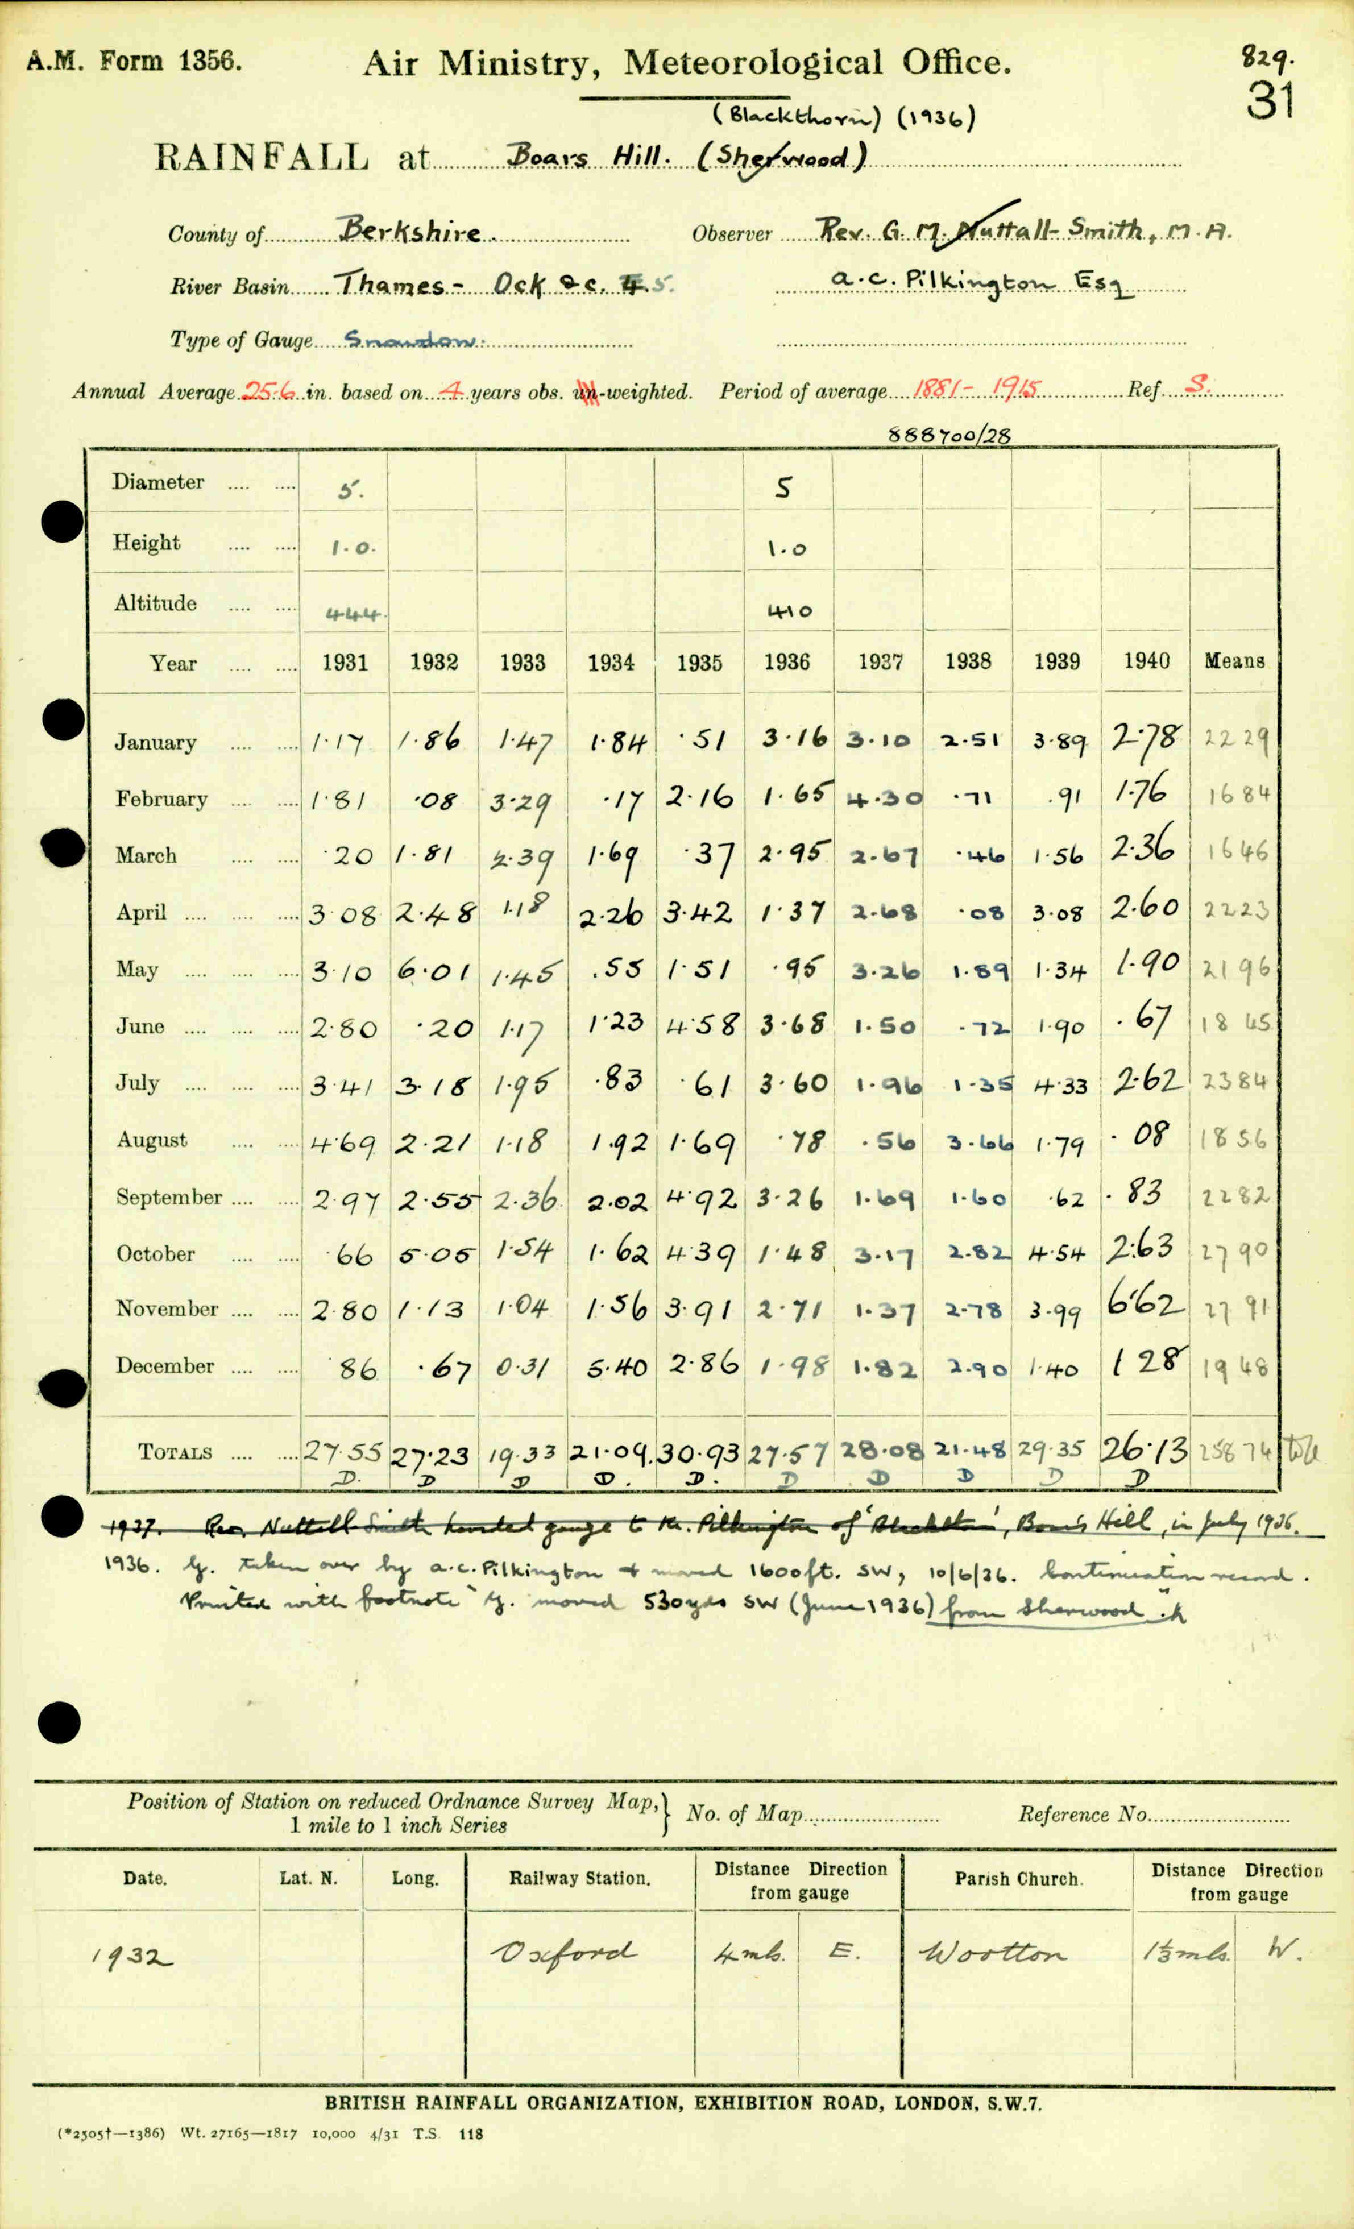 A.M. Form 1356. Air Ministry, Meteorological Office. 829.
31
(Blackthorn) (1936)
RAINFALL at Boars Hill. (Sherwood)
County of Berkshire. Observer Rev. G. M. Nuttall-Smith, M.A.
River Basin Thames - Ock &c. 4. 5. A.C. Pilkington Esq
Type of Gauge Snowdon.
Annual Average 25.6 in. based on 4 years obs. un-weighted. Period of average 1881-1915 Ref S.
888700/28
Diameter .... .... 5. 5
Height .... .... 1.0. 1.0
Altitude .... .... 444. 410
Year .... .... 1931 1932 1933 1934 1935 1936 1937 1938 1939 1940 Means
January .... .... 1.17 1.86 1.47 1.84 .51 3.16 3.10 2.51 3.89 2.78 22 29
February .... .... 1.81 .08 3.29 .17 2.16 1.65 4.30 .71 .91 1.76 16 84
March .... .... .20 1.81 2.39 1.69 .37 2.95 2.67 .46 1.56 2.36 16 46
April .... .... .... 3.08 2.48 1.18 2.26 3.42 1.37 2.68 .08 3.08 2.60 22 23
May .... .... .... 3.10 6.01 1.45 .55 1.51 .95 3.26 1.89 1.34 1.90 21 96
June .... .... .... 2.80 .20 1.17 1.23 4.58 3.68 1.50 .72 1.90 .67 18 45
July .... .... .... 3.41 3.18 1.95 .83 .61 3.60 1.96 1.35 4.33 2.62 23 84
August .... .... 4.69 2.21 1.18 1.92 1.69 .78 .56 3.66 1.79 .08 18 56
September .... .... 2.97 2.55 2.36 2.02 4.92 3.26 1.69 1.60 .62 .83 22 82
October .... .... .66 5.05 1.54 1.62 4.39 1.48 3.17 2.82 4.54 2.63 27 90
November .... .... 2.80 1.13 1.04 1.56 3.91 2.71 1.37 2.78 3.99 6.62 27 91
December .... .... 86 .67 0.31 5.40 2.86 1.98 1.82 2.90 1.40 1 28 19 48
TOTALS .... .... 27.55 27.23 19.33 21.09. 30.93 27.57 28.08 21.48 29.35 26.13 258 74
D. D D D. D. D D D D D
1937. Rev. Nuttall-Smith handed gauge to Mr. Pilkington of 'Blackthorn', Boars Hill, in July 1936.
1936. G. taken over by A.C. Pilkington & moved 1600ft. SW, 10/6/36. Continuation record.
Printed with footnote "G. moved 530yds SW (June 1936) from Sherwood."
Position of Station on reduced Ordnance Survey Map, } No. of Map Reference No.
1 mile to 1 inch Series
Date. Lat. N. Long. Railway Station. Distance from gauge Direction Parish Church. Distance from gauge Direction
1932 Oxford 4mls. E. Wootton 1⅓mls. W.
BRITISH RAINFALL ORGANIZATION, EXHIBITION ROAD, LONDON, S.W.7.
(*2505†—1386) Wt. 27165—1817 10,000 4/31 T.S. 118